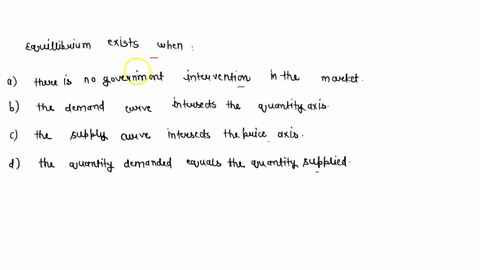 Equillibrium exists when :
a) there is no government intervention in the market.
b) the demand curve intersects the quantity axis.
c) the supply curve intersects the price axis.
d) the quantity demanded equals the quantity supplied.